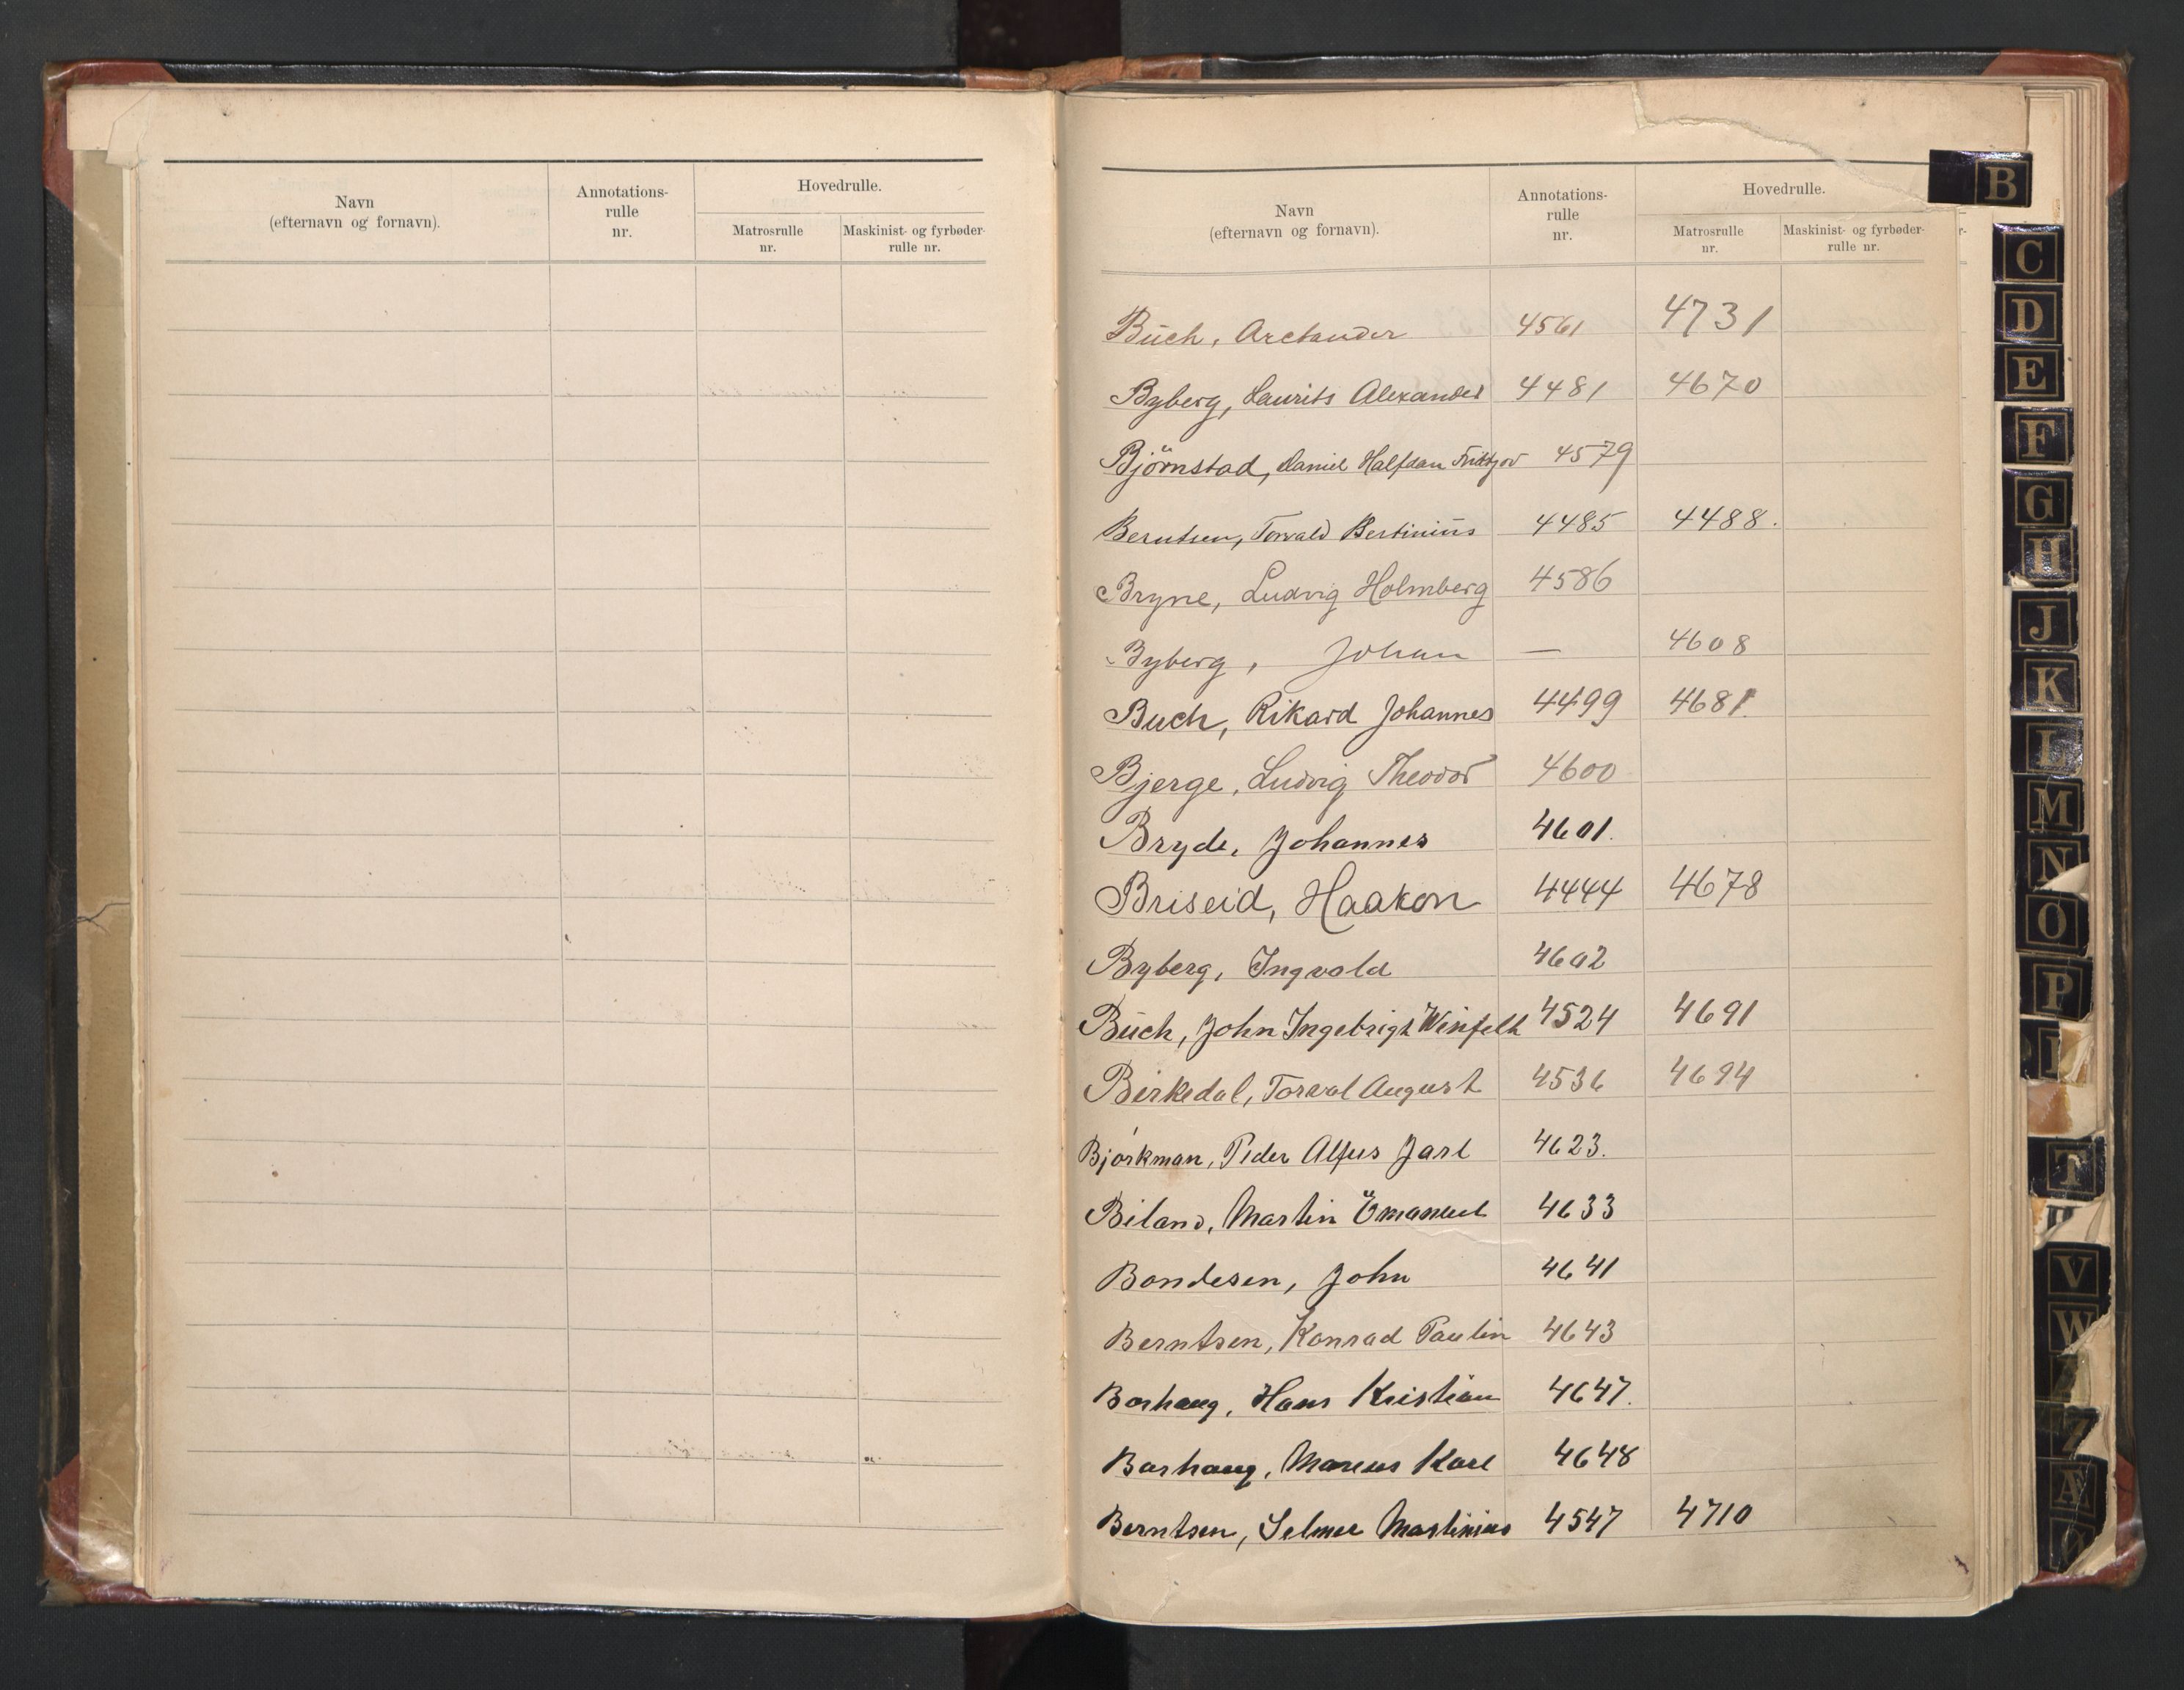 Navn
(efternavn og fornavn).
Annotations-
rulle
nr.
Hovedrulle.
Matrosrulle
nr.
Maskinist- og fyrbøder-
rulle nr.
Navn
(efternavn og fornavn).
Annotations-
rulle
nr.
Hovedrulle.
Matrosrulle
nr.
Maskinist- og fyrbøder-
rulle nr.
Buch, Arctander 4561 4731
Byberg, Laurits Alexander 4481 4670
Björnstad, Daniel Halfdan Fridtjov 4579
Berntsen, Torvald Bertinius 4485 4488.
Bryne, Ludvig Holmberg 4586
Byberg, Johan — 4608
Buch, Rikard Johannes 4499 4681.
Bjerge, Ludvig Theodor 4600
Bryde, Johannes 4601.
Briseid, Haakon 4444 4678
Byberg, Ingvald 4602
Buch, John Ingebrigt Winfelt 4524 4691
Birkedal, Torval August 4536 4694
Bjørkman, Peder Alfus Jarl 4623.
Biland, Martin Emanuel 4633
Bondesen, John 4641
Berntsen, Konrad Paulin 4643
Borhaug, Hans Kristian 4647.
Borhaug, Marcus Karl 4648
Berntsen, Selmer Martinius 4547 4710
B
C
D
E
F
G
H
J
K
L
M
N
O
P
T
V
W
Z
Æ